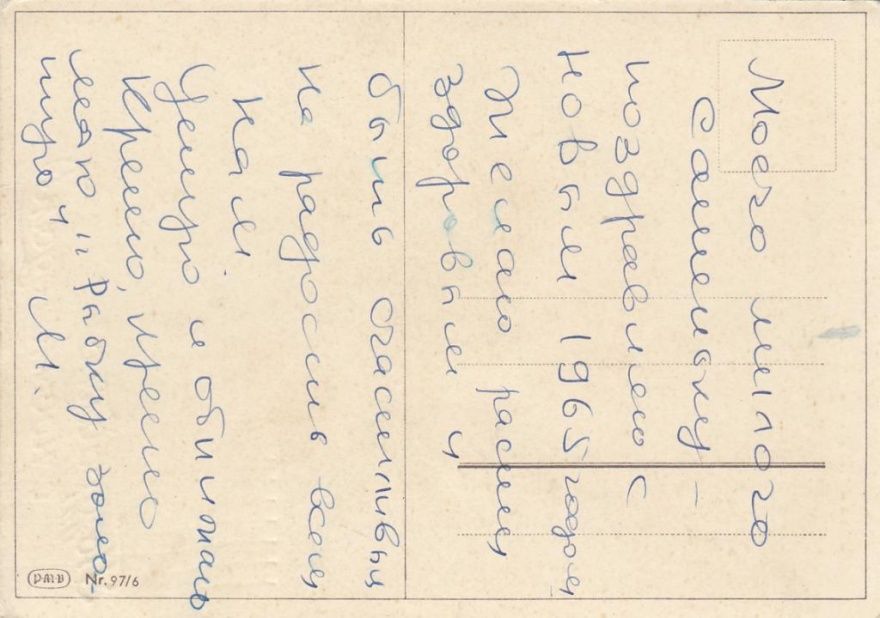 Моего милого
Сашеньку –
поздравляю с
Новым 1965 годом
Желаю расти
здоровым и
быть счастливым
На радость всем
нам.
Целую и обнимаю
Крепко, крепко
мою „Рыбку золо-
тую"
М.
PMB Nr. 97/6